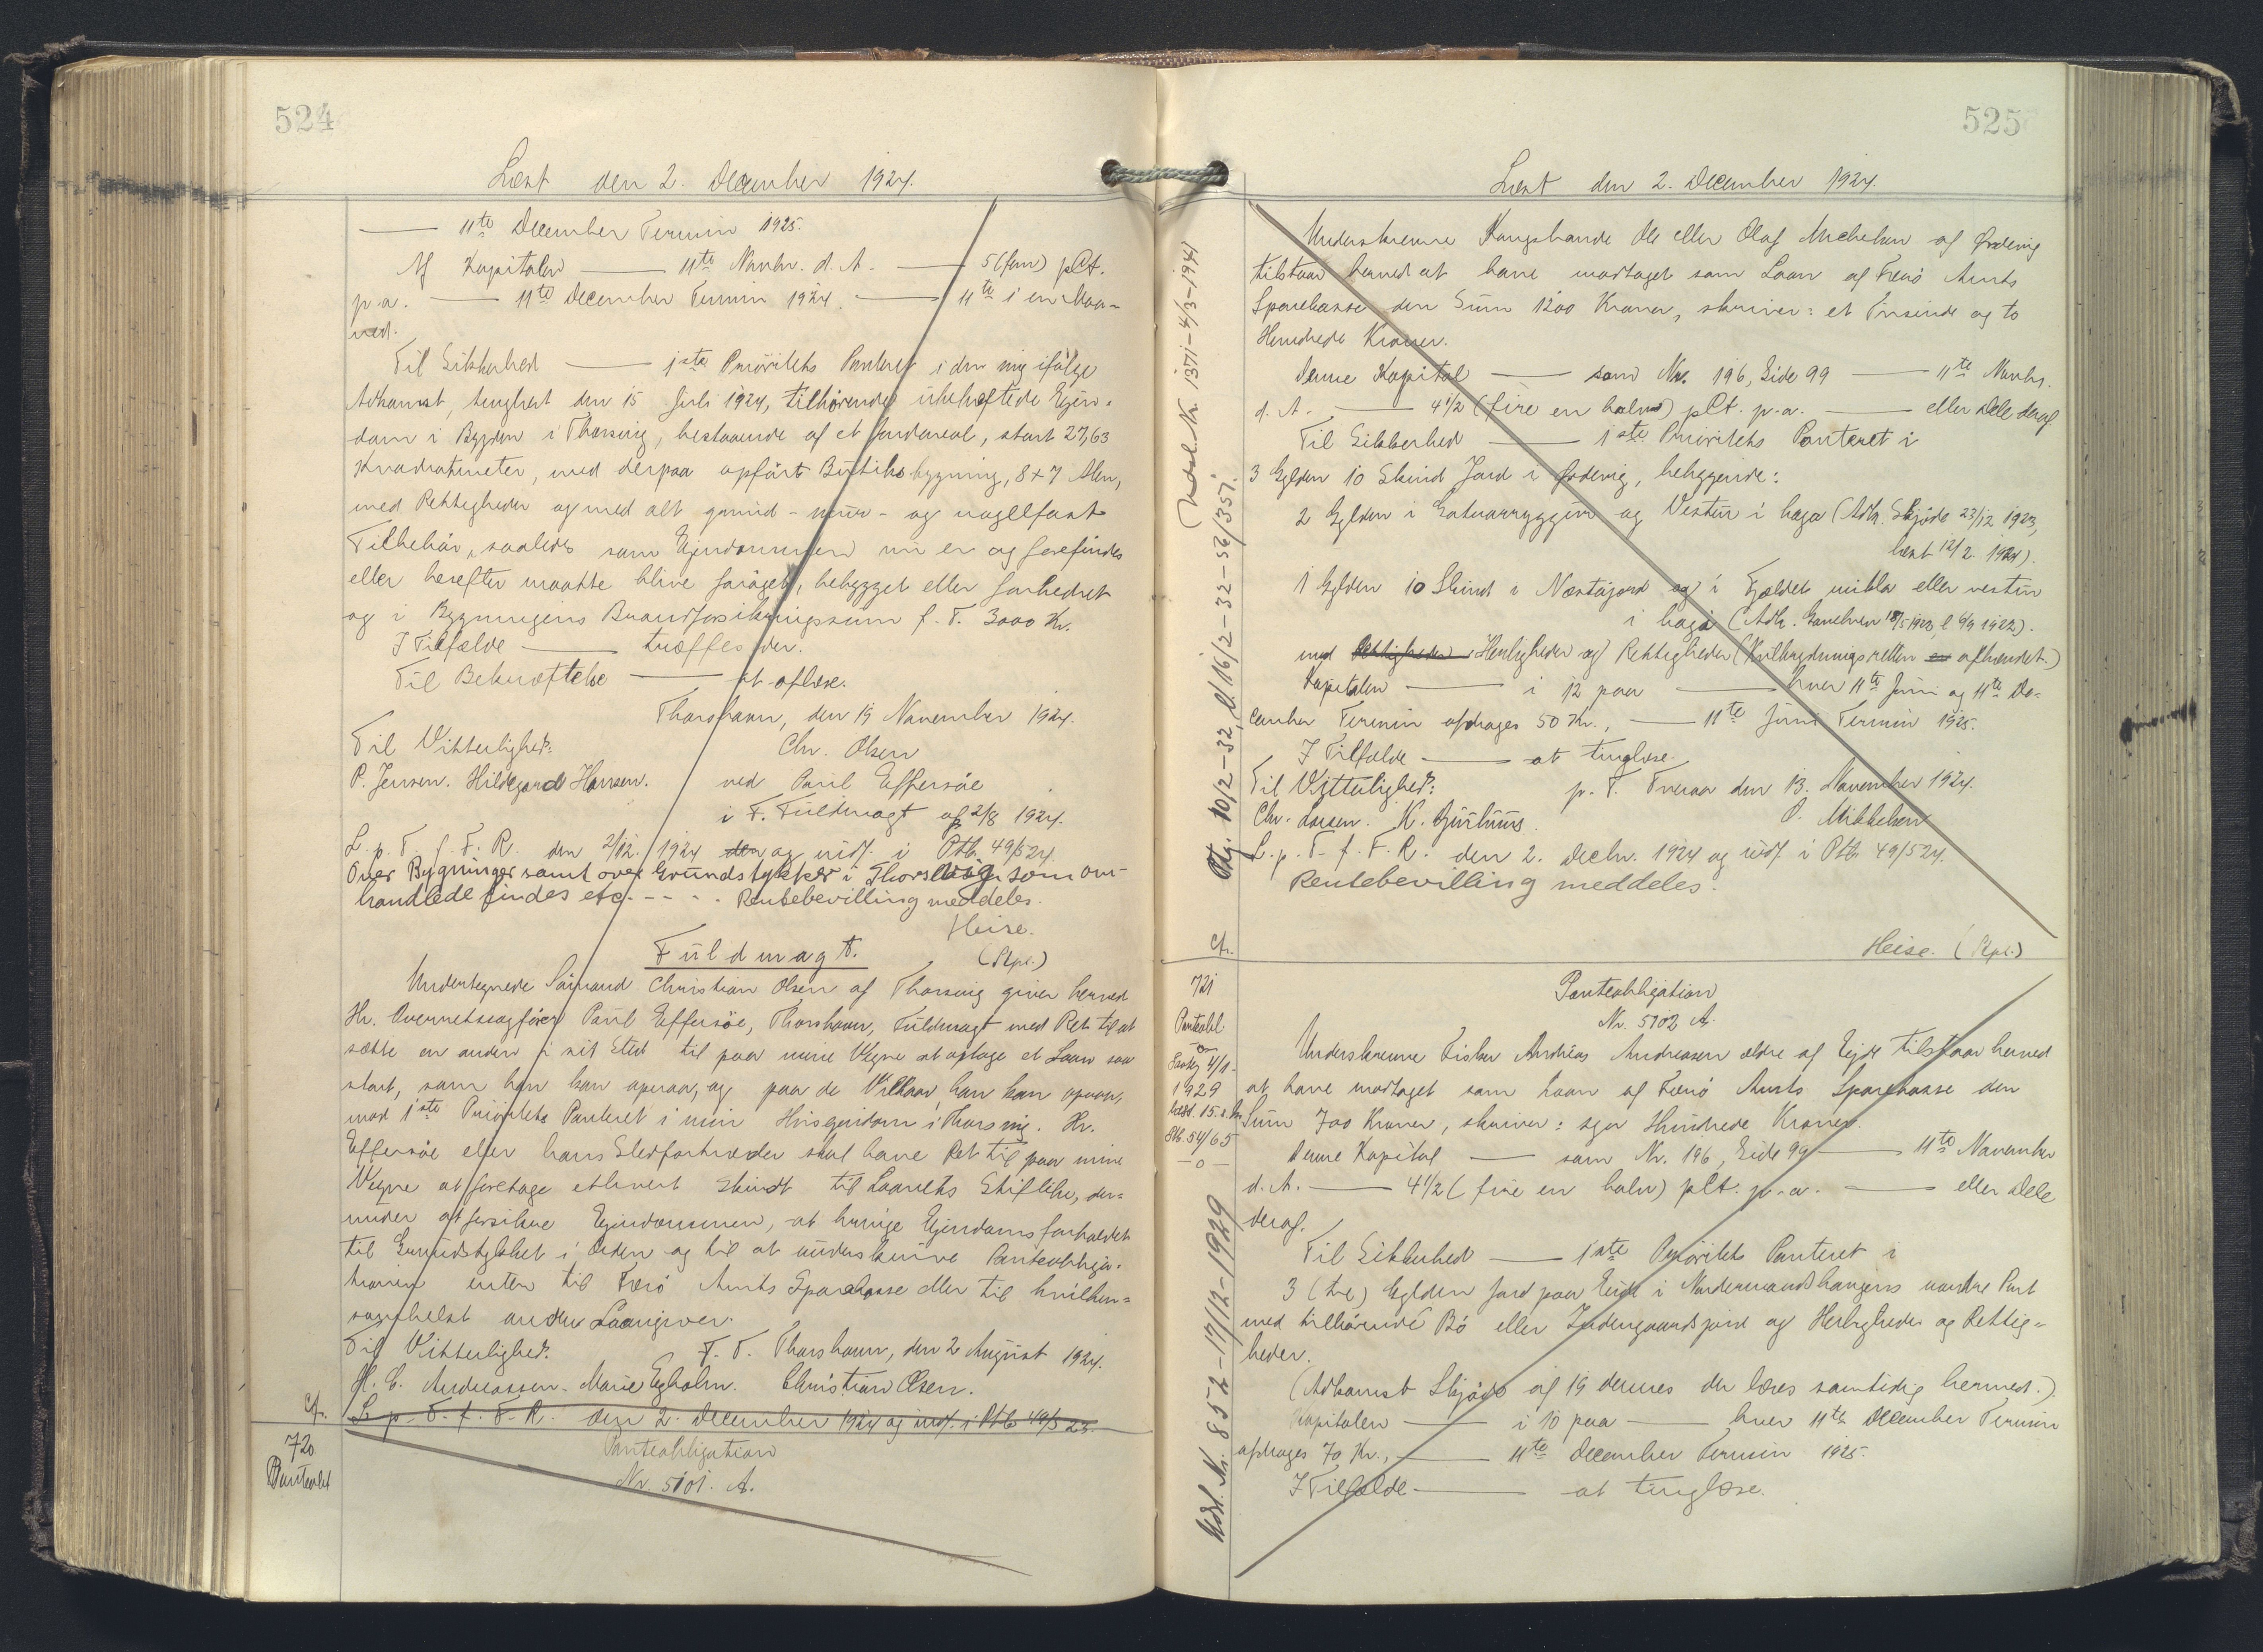 524
Læst den 2. December 1924.
— 11te December Termin 1925.
Af Kapitalen — 11te Novbr. d. A. — 5 (fem) pCt.
p.a. — 11te December Termin 1924. — 11te i en Maa-
ned.
Til Sikkerhed — 1ste Prioritets Panteret i den mig ifølge
Adkomst, tinglæst den 15 Juli 1924, tilhørende ubehæftede Ejen-
dom i Bygden i Thorsvig, bestaaende af et Jordareal, stort 27,63
Kvadratmeter, med derpaa opført Butiksbygning, 8 x 7 Alen,
med Rettigheder og med alt grund- mur- og nagelfast
Tilbehør, saaledes som Ejendommen nu er og forefindes
eller herefter maatte blive forøget, bebygget eller forbedret
og i Bygningens Brandforsikringssum f. T. 3000 Kr.
I Tilfælde — træffes der.
Til Bekræftelse — at aflæse.
Thorshavn, den 19 November 1924.
Til Vitterlighed:
Chr. Olsen
P. Jensen. Hildegard Hansen.
ved Paul Effersøe
i F. Fuldmagt af 2/8 1924.
L. p. T. f. F. R. den 2/12. 1924 den og indf. i Ptb. 49/524.
Over Bygninger samt over Grundstykker i Thorsvig som om-
handlede findes etc. - - - - Rentebevilling meddeles.
Heise.
(Stpl.)
Fuldmagt.
Undertegnede Sømand Christian Olsen af Thorsvig giver herved
Hr. Overretssagfører Paul Effersøe, Thorshavn, Fuldmagt med Ret til at
sætte en anden i sit Sted til paa mine Vegne at optage et Laan saa
stort, som han kan opnaa, og paa de Vilkaar, han kan opnaa,
mod 1ste Prioritets Panteret i min Husejendom i Thorsvig. Hr.
Effersøe eller hans Stedfortræder skal have Ret til paa mine
Vegne at foretage ethvert Skridt til Laanets Stiftelse, der-
under at forsikre Ejendommen, at bringe Ejendomsforholdet
til Grundstykket i Orden og til at underskrive Panteobliga-
tionen enten til Færø Amts Sparekasse eller til hvilken-
somhelst anden Laangiver.
Til Vitterlighed:
F. T. Thorshavn, den 2 August 1924.
H. C. Andreassen. Marie Egholm. Christian Olsen.
cfr.
L. p. T. f. F. R. den 2. December 1924 og indf. i Ptb 49/523.
720
Panteobl
Panteobligation
Nr. 5101. A.
525
Læst den 2. December 1924.
Underskrevne Kongsbonde Ole eller Olaf Michelsen af Ørdevig
tilstaar herved at have modtaget som Laan af Færø Amts
Sparekasse den Sum 1200 Kroner, skriver: et Tusinde og to
Hundrede Kroner.
Denne Kapital — som Nr. 196, Side 99 — 11te Novbr.
d. A. — 4 1/2 (fire en halv) pCt. p.a. — eller Dele deraf
Til Sikkerhed — 1ste Prioritets Panteret i
3 Gylden 10 Skind Jord i Ørdevig, beliggende:
2 Gylden i Gatuarryggur og Vestur i haga (Adk. Skjøde 23/12 1923,
læst 12/2. 1924).
1 Gylden 10 Skind i Næstagard og i Fjældet mitla eller vestur
i haga (Adk. Gavebrev 18/5 1920, l. 6/9 1922).
med Rettigheder Herligheder og Rettigheder (Kulbrydningsretten er afhændet.)
Kapitalen — i 12 paa — hver 11te Juni og 11te De-
cember Termin afdrages 50 Kr., — 11te Juni Termin 1925.
I Tilfælde — at tinglæse.
Til Vitterlighed:
p. T. Tveraa den 13. November 1924.
Chr. Larsen. K. Djurhuus.
O. Mikkelsen
L. p. T. f. F. R. den 2. Decbr. 1924 og indf. i Ptb 49/524.
Rentebevilling meddeles.
Heise. (Stpl.)
cfr.
Udsl. Nr. 1371-4/3-1941
Qtg. 10/2-32, l. 16/2-32-52/351.
721
Panteobl.
-o-
1929
Læst. 15. s. M.
Ptb. 54/65
-o-
Udsl. Nr. 852-17/12-1929
Panteobligation
Nr. 5102 A.
Underskrevne Fisker Andrias Andreasen ældre af Ejde tilstaar herved
at have modtaget som Laan af Færø Amts Sparekasse den
Sum 700 Kroner, skriver: syv Hundrede Kroner.
Denne Kapital — som Nr. 196, Side 99 — 11te November
d. A. — 4 1/2 (fire en halv) pCt. p.a. — eller Dele
deraf.
Til Sikkerhed — 1ste Prioritets Panteret i
3 (tre) Gylden Jord paa Eide i Nordermandshaugens nordre Part
med tilhørende Bø eller Indengaardsjord og Herligheder og Rettig-
heder.
(Adkomst Skjøde af 19 dennes der læses samtidig hermed.)
Kapitalen — i 10 paa — hver 11te December Termin
afdrages 70 Kr., — 11te December Termin 1925.
I Tilfælde — at tinglæse.